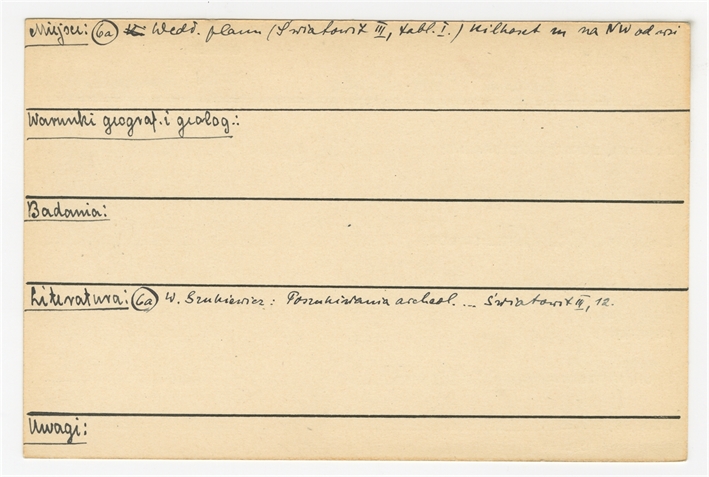 Miejsce: (6a) Wedł. planu (Światowit III, tabl. I.) kilkaset m na NW od wsi
Warunki geograf. i geolog.:
Badania:
Literatura: (6a) W. Szukiewicz: Poszukiwania archeol. ... Światowit III, 12.
Uwagi: